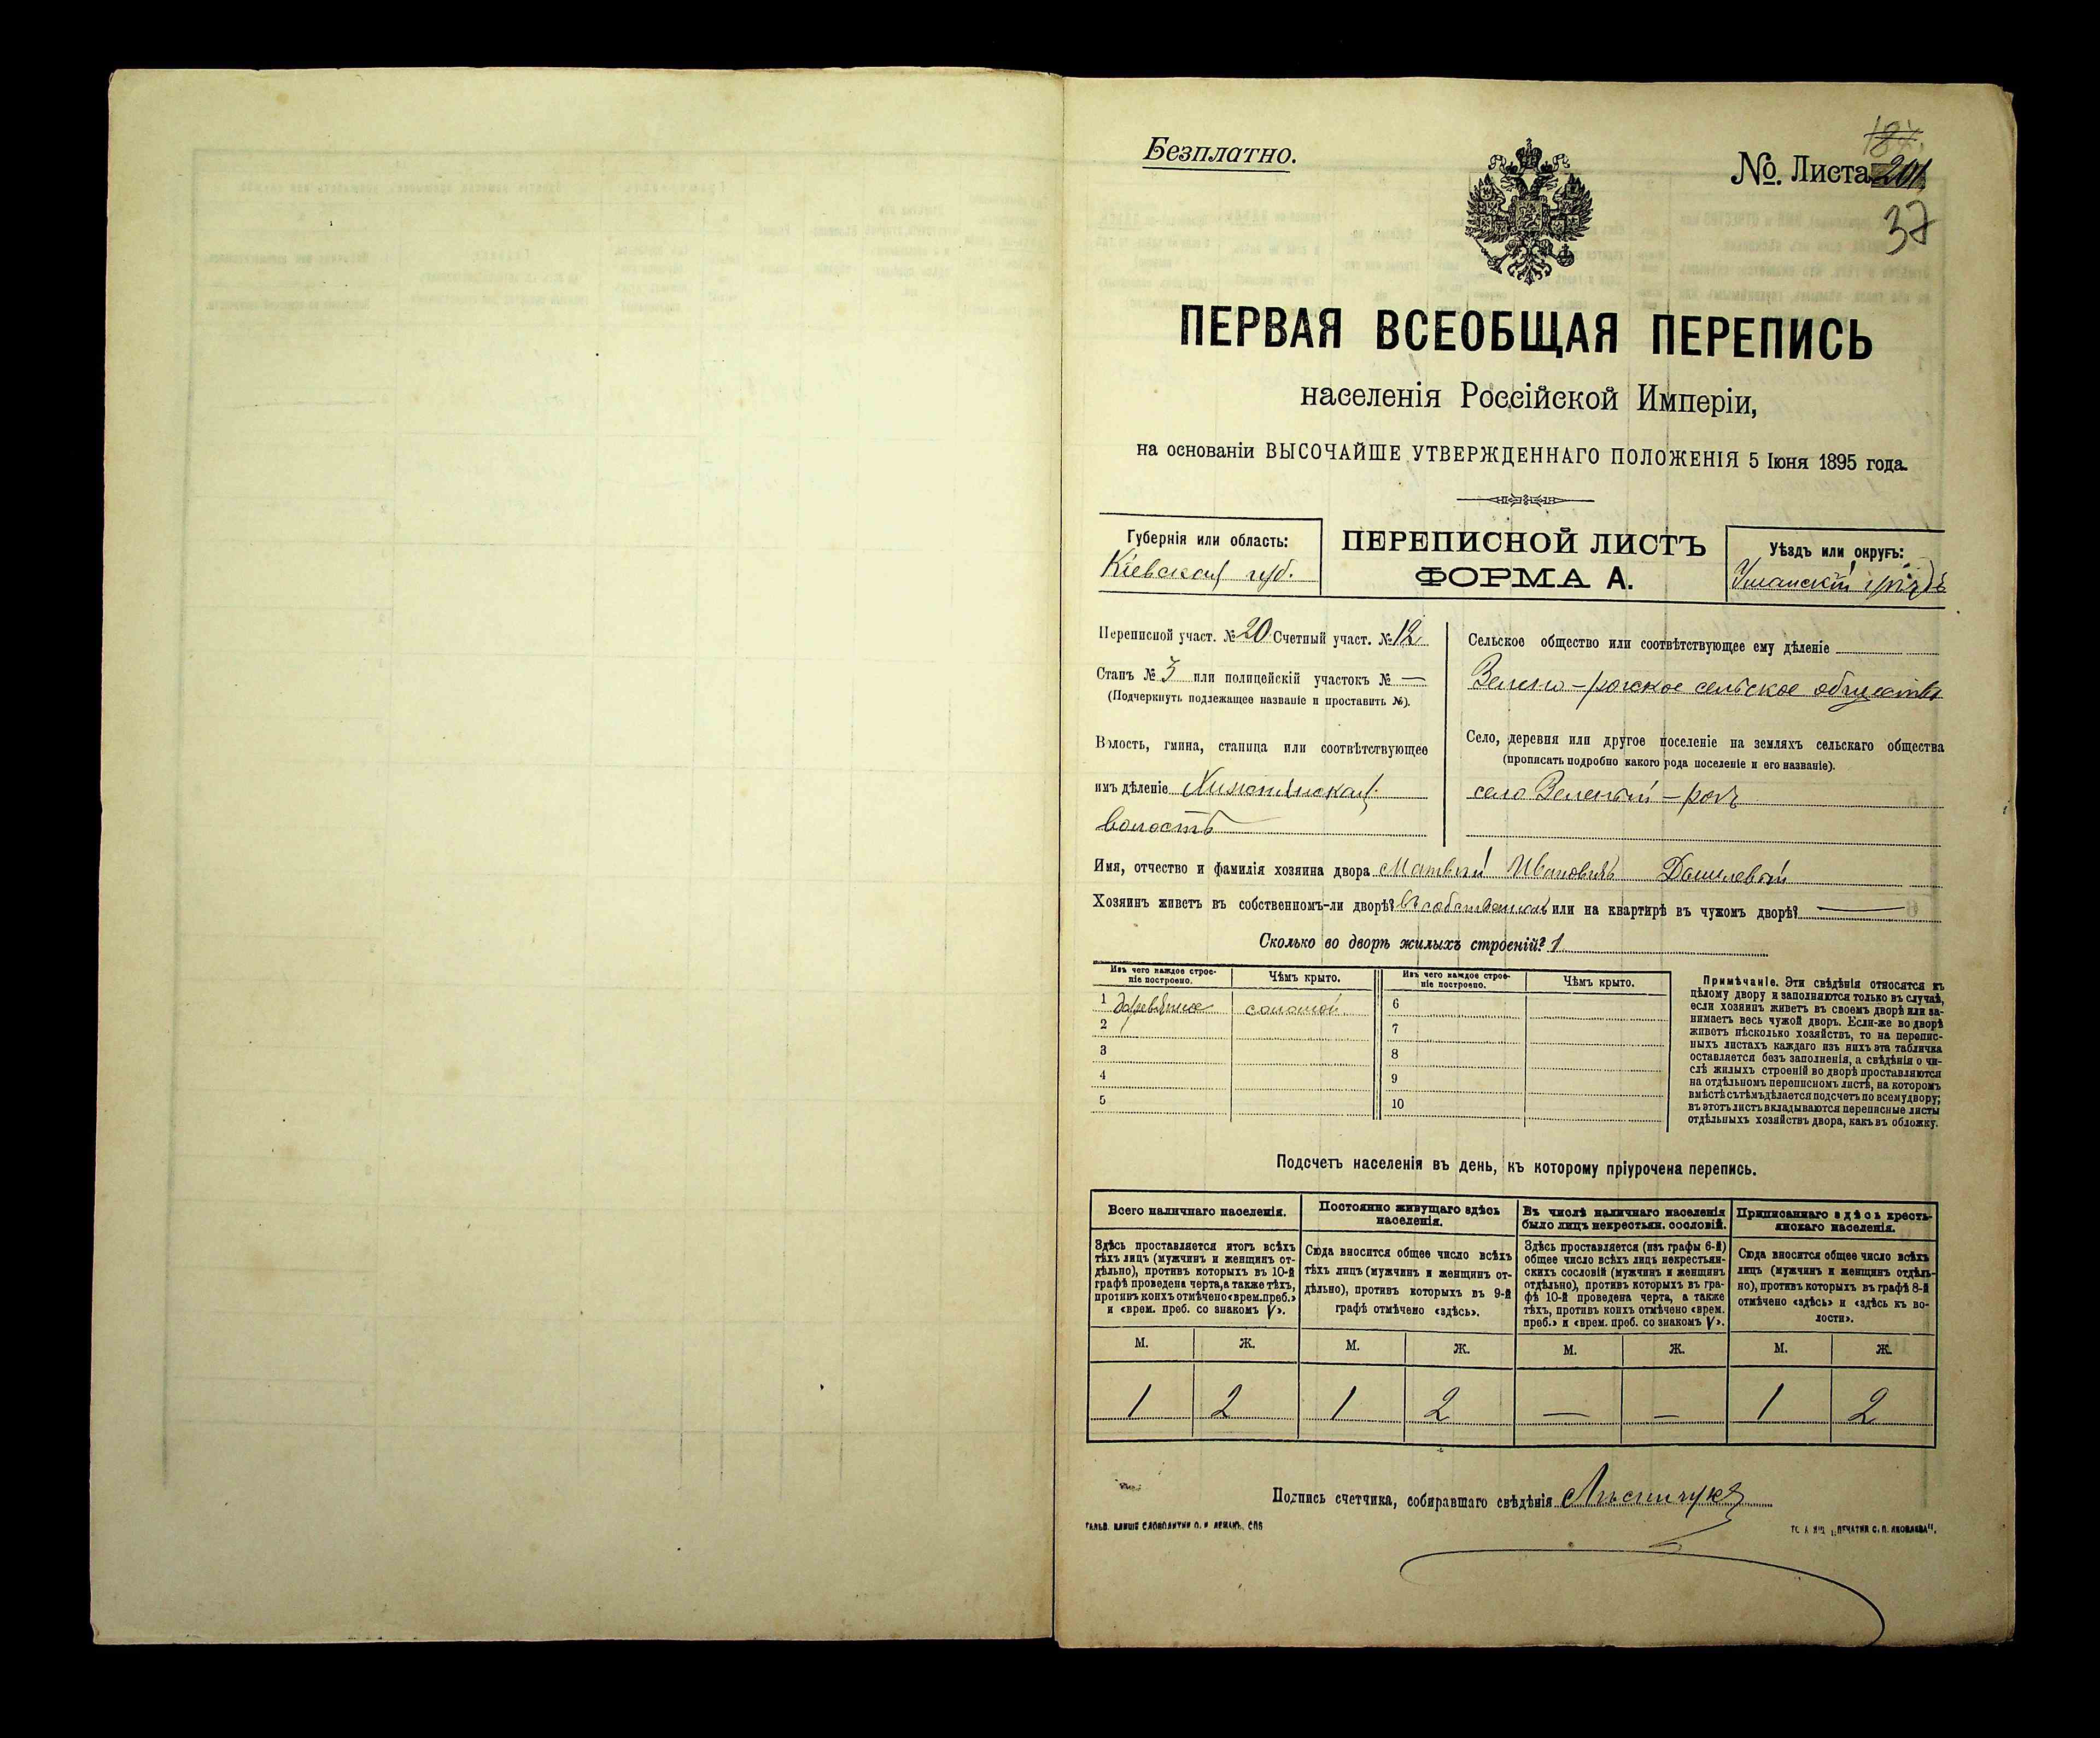 Безплатно.
187.
№. Листа 201
37
ПЕРВАЯ ВСЕОБЩАЯ ПЕРЕПИСЬ
населенія Россійской Имперіи,
на основаніи ВЫСОЧАЙШЕ УТВЕРЖДЕННАГО ПОЛОЖЕНІЯ 5 Іюня 1895 года.
Губернія или область:
Кіевская губ.
ПЕРЕПИСНОЙ ЛИСТЪ
ФОРМА А.
Уѣздъ или округъ:
Уманскій уѣздъ
Переписной участ. № 20 Счетный участ. № 12
Станъ № 3 или полицейскій участокъ № —
(Подчеркнуть подлежащее названіе и проставить №).
Волость, гмина, станица или соотвѣтствующее
имъ дѣленіе
волость
Сельское общество или соотвѣтствующее ему дѣленіе
Зелено-рожское сельское общество
Село, деревня или другое поселеніе на земляхъ сельскаго общества
(прописать подробно какого рода поселеніе и его названіе).
село Зеленый-рогъ
Имя, отчество и фамилія хозяина двора Матвѣй Ивановичъ
Хозяинъ живетъ въ собственномъ-ли дворѣ? въ собственномъ или на квартирѣ въ чужомъ дворѣ? —
Сколько во дворѣ жилыхъ строеній? 1
Изъ чего каждое строе-
ніе построено.
Чѣмъ крыто.
Изъ чего каждое строе-
ніе построено.
Чѣмъ крыто.
1 соломой
2
3
4
5
6
7
8
9
10
Примѣчаніе. Эти свѣдѣнія относятся къ
цѣлому двору и заполняются только въ случаѣ,
если хозяинъ живетъ въ своемъ дворѣ или за-
нимаетъ весь чужой дворъ. Если-же во дворѣ
живетъ нѣсколько хозяйствъ, то на перепис-
ныхъ листахъ каждаго изъ нихъ эта табличка
оставляется безъ заполненія, а свѣдѣнія о чи-
слѣ жилыхъ строеній во дворѣ проставляются
на отдѣльномъ переписномъ листѣ, на которомъ
вмѣстѣ съ тѣмъ дѣлается подсчетъ по всему двору;
въ этотъ листъ вкладываются переписные листы
отдѣльныхъ хозяйствъ двора, какъ въ обложку.
Подсчетъ населенія въ день, къ которому пріурочена перепись.
Всего наличнаго населенія.
Здѣсь проставляется итогъ всѣхъ
тѣхъ лицъ (мужчинъ и женщинъ от-
дѣльно), противъ которыхъ въ 10-й
графѣ проведена черта, а также тѣхъ,
противъ коихъ отмѣчено «врем. преб.»
и «врем. преб. со знакомъ V».
Постоянно живущаго здѣсь
населенія.
Сюда вносится общее число всѣхъ
тѣхъ лицъ (мужчинъ и женщинъ от-
дѣльно), противъ которыхъ въ 9-й
графѣ отмѣчено «здѣсь».
Въ числѣ наличнаго населенія
было лицъ некрестьян. сословій.
Здѣсь проставляется (изъ графы 6-й)
общее число всѣхъ лицъ некрестьян-
скихъ сословій (мужчинъ и женщинъ
отдѣльно), противъ которыхъ въ гра-
фѣ 10-й проведена черта, а также
тѣхъ, противъ коихъ отмѣчено «врем.
преб.» и «врем. преб. со знакомъ V».
Приписаннаго здѣсь кресть-
янскаго населенія.
Сюда вносится общее число всѣхъ
лицъ (мужчинъ и женщинъ отдѣль-
но), противъ которыхъ въ графѣ 8-й
отмѣчено «здѣсь» и «здѣсь къ во-
лости».
М. Ж. М. Ж. М. Ж. М. Ж.
1 2 1 2 — — 1 2
Подпись счетчика, собиравшаго свѣдѣнія